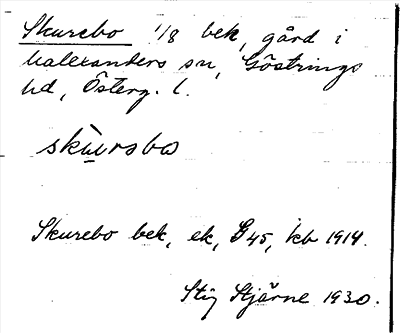 Skurebo 1/8 bek, gård i
Malexanders sn, Göstrings
hd, Österg. l.
skursbo
Skurebo bek, ek, G 45, kb 1914.
Stig Stjärne 1930.